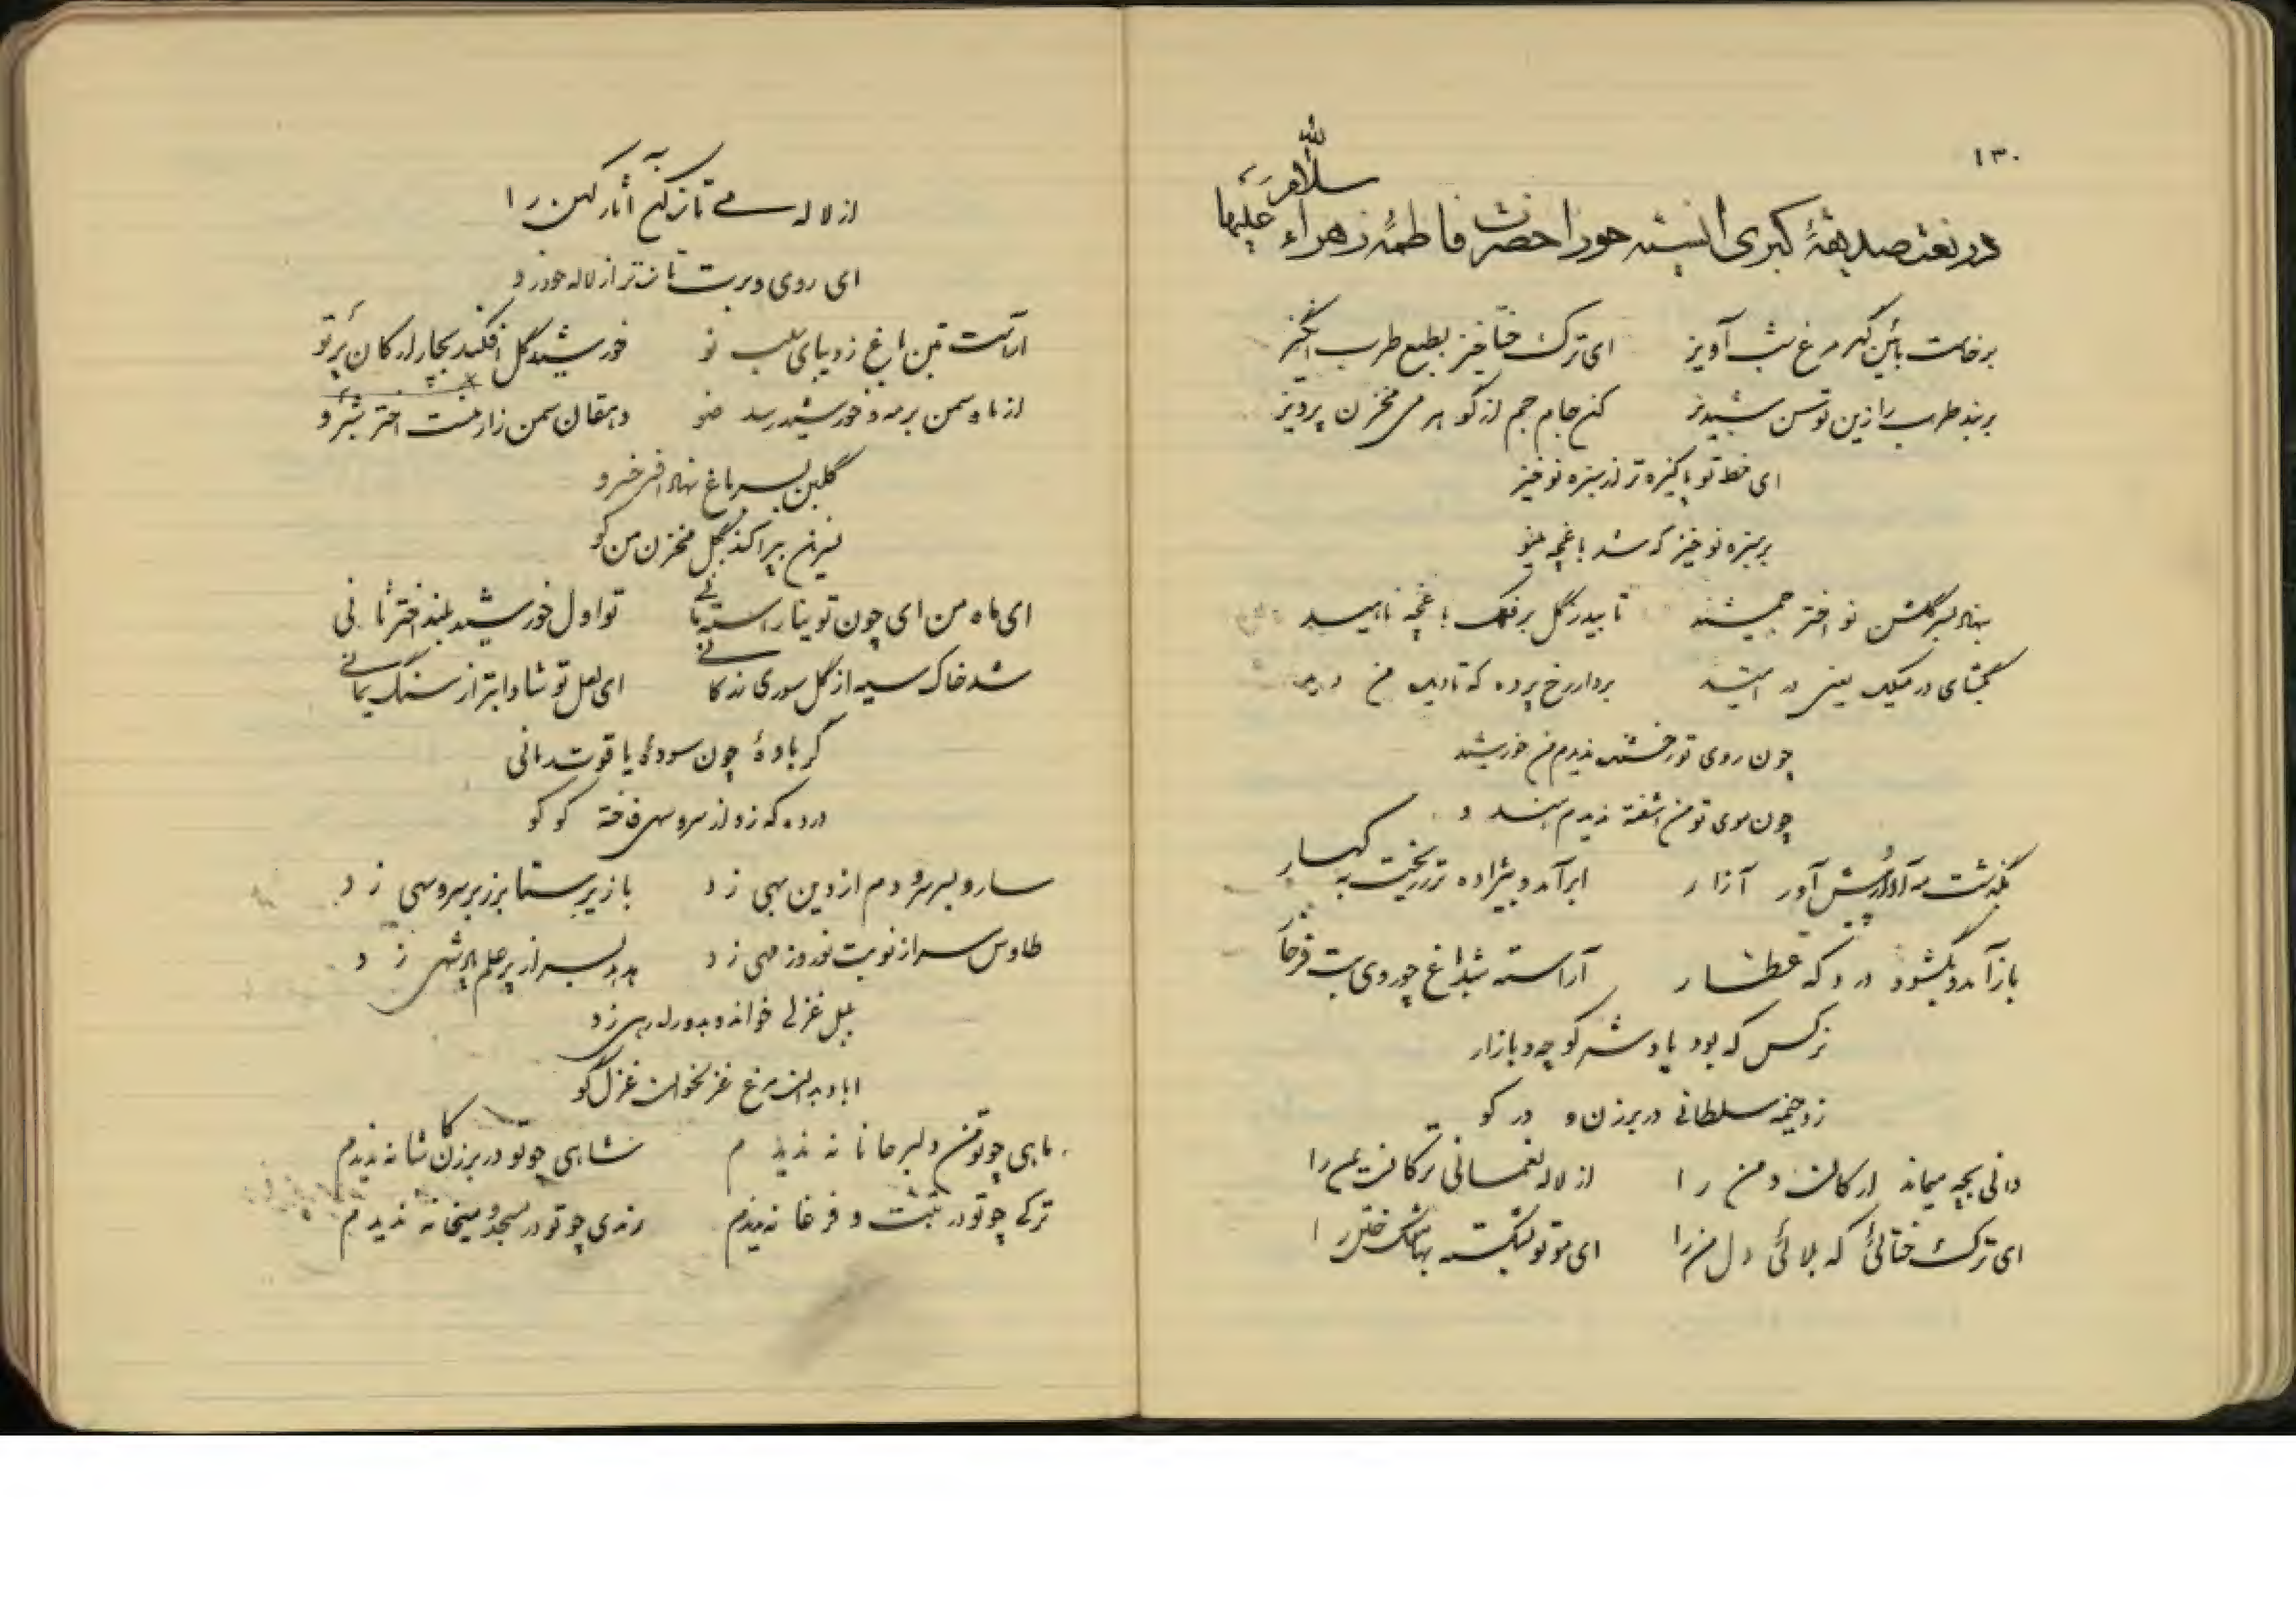 ۱۳۰
در نعت صدیقهٔ کبری انسیه حورا حضرت فاطمهٔ زهراء سلام الله علیها
برخاست بآئین دگر مرغ شب آویز ای ترک ختا خیز بطبع طرب انگیز
بربند طرب را زین توسن شبدیز کن جام جم از گوهر می مخزن پرویز
ای خط تو پاکیزه تر از سبزه نوخیز
بر سبزه نوخیز که شد باغچه مینو
بنهاد بسر گلشن نو افسر جمشید تابید ز گل بر فلک باغچه ناهید
بگشای در میکده یعنی در امید بردار ز رخ پرده که تا دیده من دید
چون روی تو رخشنده ندیدم من خورشید
چون موی تو من آشفته ندیدم
بگذشت مه آذر و پیش آور آزار ابر آمد و بیجاده تر ریخت به کهسار
باز آمد و بگشود در دکه عطار آراسته شد باغ چو روی بت فرخار
نرگس که بود پادشه کوچه و بازار
زد خیمه سلطانی در برزن و در کو
دانی بچه میماند ارکان دمن را از لاله نعمانی ترکان یمن را
ای ترک ختائی که بلائی دل من را ای مو تو بشکسته بها مشک ختن را
از لاله می تازه کن آثار کهن را
ای روی و برت تازه تر از لاله خودرو
آراست تن باغ ز دیبای سلب نو خورشید گل افکند بچار ارکان پرتو
از ماه سمن بر مه و خورشید رسد ضو دهقان سمن زار منست اختر شبرو
گلبن بسر باغ نهاد افسر خسرو
نسرین بپراکند بگل مخزن من کو
ای ماه من ای چون تو بتا راسته تا نی تو اول خورشید بلند اختر ثانی
شد خاک سیه از گل سوری زر کانی ای لعل تو شادابتر از سنگ یمانی
گر بادهٔ چون سودهٔ یاقوت رمانی
درده که زد از سرو سهی فاخته کوکو
سارو بسر سرو دم از دین بهی زد باز پر بستا برزبر سرو سهی زد
طاوس سر از نوبت نوروز مهی زد هدهد بسر از پر علم پادشهی زد
بلبل غزلی خواند و
مرغ غزلخوان غزل گو
ماهی چو تو من دلبر جانانه ندیدم شاهی چو تو در برزن و کاشانه ندیدم
ترکی چو تو در تبت و فرغانه ندیدم رندی چو تو در مسجد و میخانه ندیدم